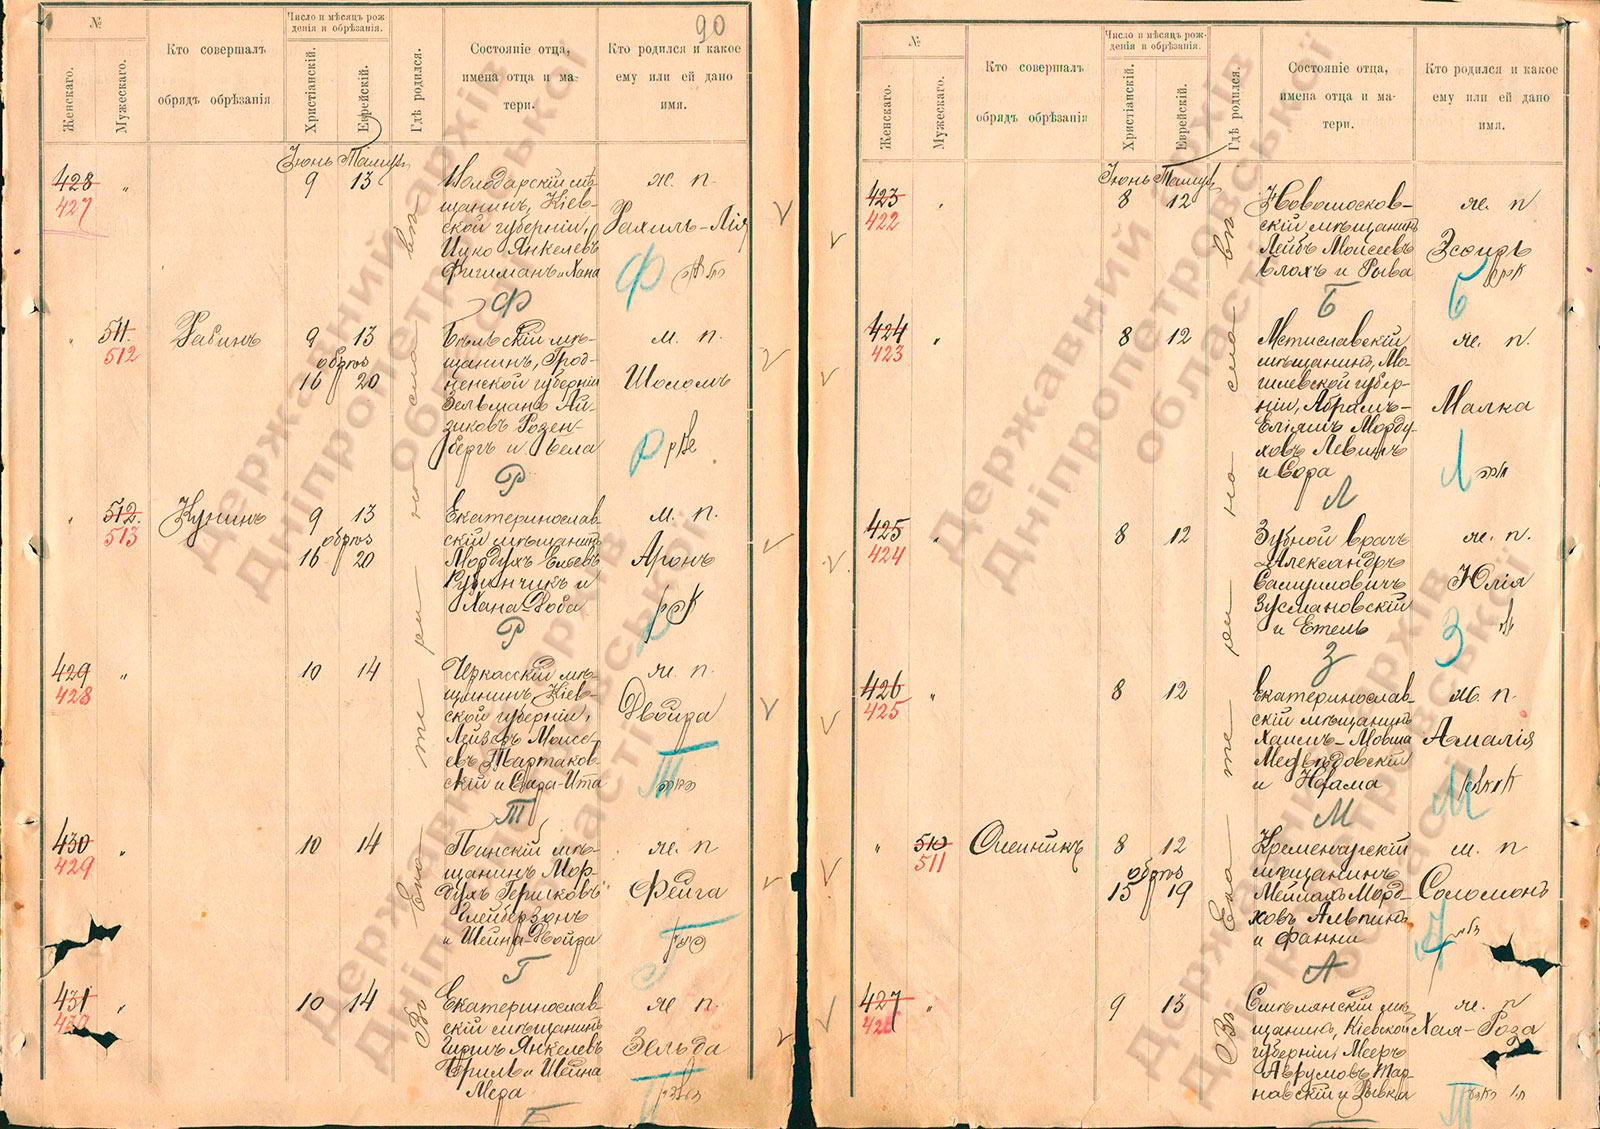 90
№
Женскаго.
Мужескаго.
Кто совершалъ
обрядъ обрѣзанія
Число и мѣсяцъ рож-
денія и обрѣзанія.
Христіанскій.
Еврейскій.
Гдѣ родился.
Состояніе отца,
имена отца и ма-
тери.
Кто родился и какое
ему или ей дано
имя.
Іюнь
428
427
"
9
13
Володарскій мѣ-
щанинъ, Кіев-
ской губерніи,
Ицко Янкелевъ
Фигманъ и Хана
ж. п.
Рахиль-Лія
Ф
Ф
"
511.
512
Рабинъ
9
13
16
20
Бѣльскій мѣ-
щанинъ, Грод-
ненской губерніи
Зельманъ Ай-
зиковъ Розен-
бергъ и Бела
м. п.
Шоломъ
Р
Р
"
512.
513
Кунинъ
9
13
16
20
Екатеринослав-
скій мѣщанинъ
Мордухъ
и
Хана-Доба
м. п.
Аронъ
Р
429
428
"
10
14
Черкасскій мѣ-
щанинъ, Кіев-
ской губерніи,
Лейзеръ Моисе-
евъ Тартаков-
скій и Сара-Ита
ж. п.
Двойра
Т
Т
430
429
"
10
14
Пинскій мѣ-
щанинъ Мор-
духъ Гершковъ
Глейберзонъ
и Шейна-Двойра
ж. п.
Фейга
Г
Г
431
430
"
10
14
Екатеринослав-
скій мѣщанинъ
Гиршъ Янкелевъ
Бриль и Шейна
Мера
ж. п.
Зельда
Б
Въ Ека те ри но сла вѣ
Державний архів
Дніпропетровської області
№
Женскаго.
Мужескаго.
Кто совершалъ
обрядъ обрѣзанія
Число и мѣсяцъ рож-
денія и обрѣзанія.
Христіанскій.
Еврейскій.
Гдѣ родился.
Состояніе отца,
имена отца и ма-
тери.
Кто родился и какое
ему или ей дано
имя.
Іюнь
423
422
"
8
12
Новомосков-
скій мѣщанинъ
Лейбъ Моисеевъ
Блохъ и Рыва
ж. п
Эсѳирь
Б
Б
424
423
"
8
12
Мстиславскій
мѣщанинъ, Мо-
гилевской губер-
ніи, Абрамъ-
Еліяшъ Морду-
ховъ Левинъ
и Сора
ж. п.
Малка
Л
Л
425
424
"
8
12
Зубной врачъ
Александръ
Самуиловичъ
Зусмановскій
и Етель
ж. п.
Юлія
З
З
426
425
"
8
12
Екатеринослав-
скій мѣщанинъ
Хаимъ-Мовша
Медвѣдовскій
и Нехама
ж. п
Амалія
М
М
"
510
511
Олейникъ
8
12
15
19
Кременчугскій
мѣщанинъ
Меймахъ Морд-
ховъ Альпинъ
и Фанни
м. п
Соломонъ
А
А
427
426
"
9
13
Смѣлянскій мѣ-
щанинъ, Кіевской
губерніи, Мееръ
Аврумовъ Тар-
навскій и Рывка
ж. п
Хая-Роза
Т
Въ Ека те ри но сла вѣ
Державний архів
Дніпропетровської області